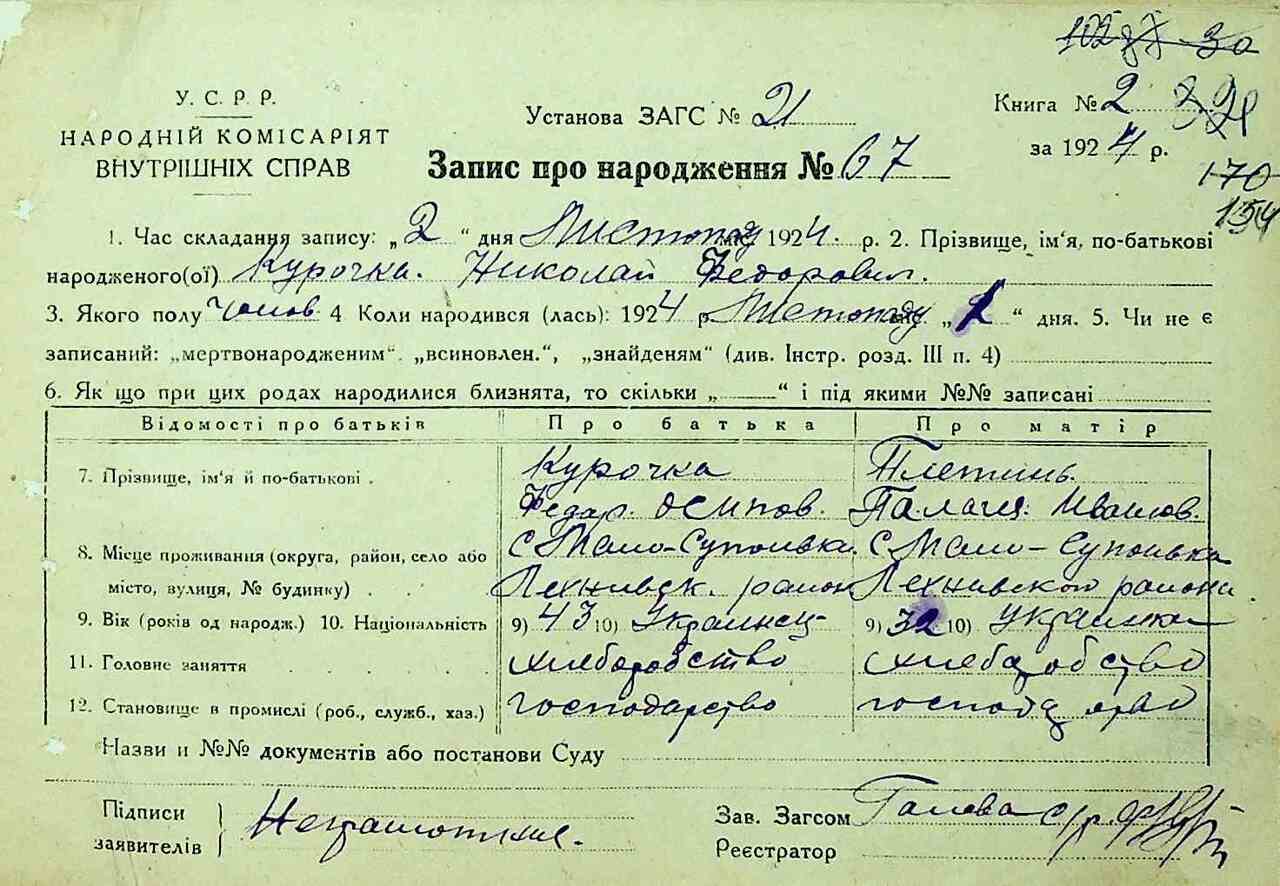 102 30
У. С. Р. Р.
НАРОДНІЙ КОМІСАРІЯТ
ВНУТРІШНІХ СПРАВ
Установа ЗАГС № 21
Книга № 2
за 1924 р.
Запис про народження № 67
170
154
1. Час складання запису: „2" дня Листопаду міс. 1924. р. 2. Прізвище, ім'я, по-батькові
народженого(ої) Курочка. Николай Федорович.
3. Якого полу чолов. 4 Коли народився (лась): 1924 р. Листопаду міс. „1" дня. 5. Чи не є
записаний: „мертвонародженим". „всиновлен.", „знайденям" (див. Інстр. розд. III п. 4)
6. Як що при цих родах народилися близнята, то скільки „ — " і під якими №№ записані
Відомості про батьків Про батька Про матір
7. Прізвище, ім'я й по-батькові . Курочка Плетинь
Федар. Осипов. Палаг. Иванов.
8. Місце проживання (округа, район, село або С Мало-Супоивка С Мало-Супоивка
місто, вулиця, № будинку) . . Лехнивск. район Лехнивского района.
9. Вік (років од народж.) 10. Національність 9) 43 10) Украинец 9) 32 10) Украинка
11. Головне заняття . . . . хлеборобство хлеборобство
12. Становище в промислі (роб., служб., хаз.) господарство господарство
Назви и №№ документів або постанови Суду
Підписи
заявителів
Неграмотние.
Зав. Загсом Голова с/р.
Реєстратор